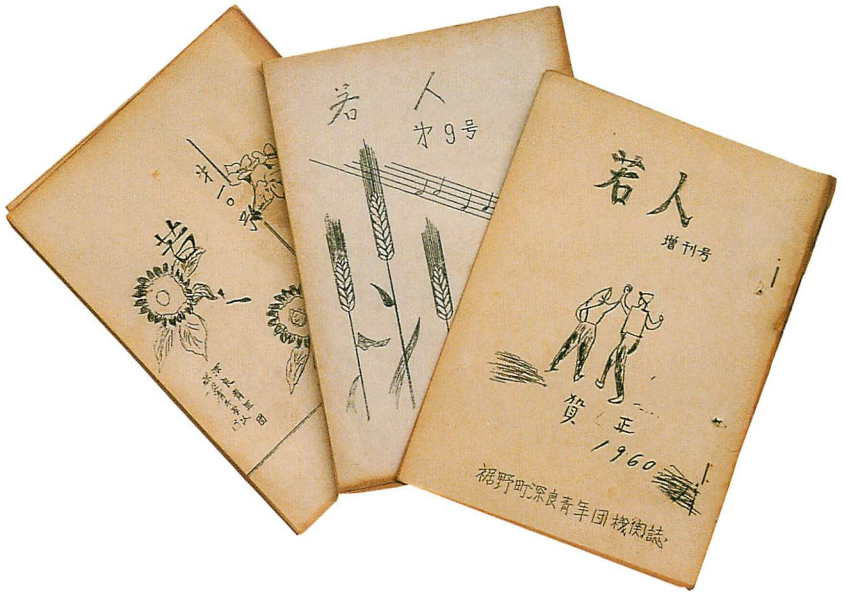 若
第一〇号
若人
第9号
若人
増刊号
賀正
1960
裾野町深良青年団機関誌